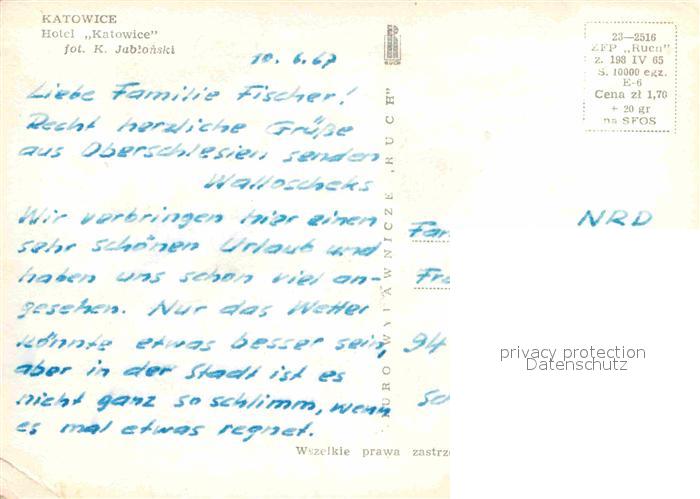 KATOWICE
Hotel „Katowice”
fot. K. Jabłoński
10. 6. 67
Liebe Familie Fischer!
Recht herzliche Grüße
aus Oberschlesien senden
Walloscheks
Wir verbringen hier einen
sehr schönen Urlaub und
haben uns schon viel an-
gesehen. Nur das Wetter
könnte etwas besser sein,
aber in der Stadt ist es
nicht ganz so schlimm, wenn
es mal etwas regnet.
BIURO WYDAWNICZE „RUCH”
23—2516
ZFP „Ruch”
z. 198 IV 65
S. 10000 egz.
E-6
Cena zł 1,70
+ 20 gr
na SFOS
NRD
Fam
Fra
94
Sc
privacy protection
Datenschutz
Wszelkie prawa zastrze